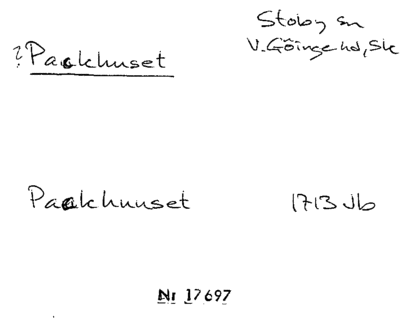 Stoby sn
?Packhuset
V. Göinge hd, Sk
Packhuuset 1713 Jb
Nr 17697